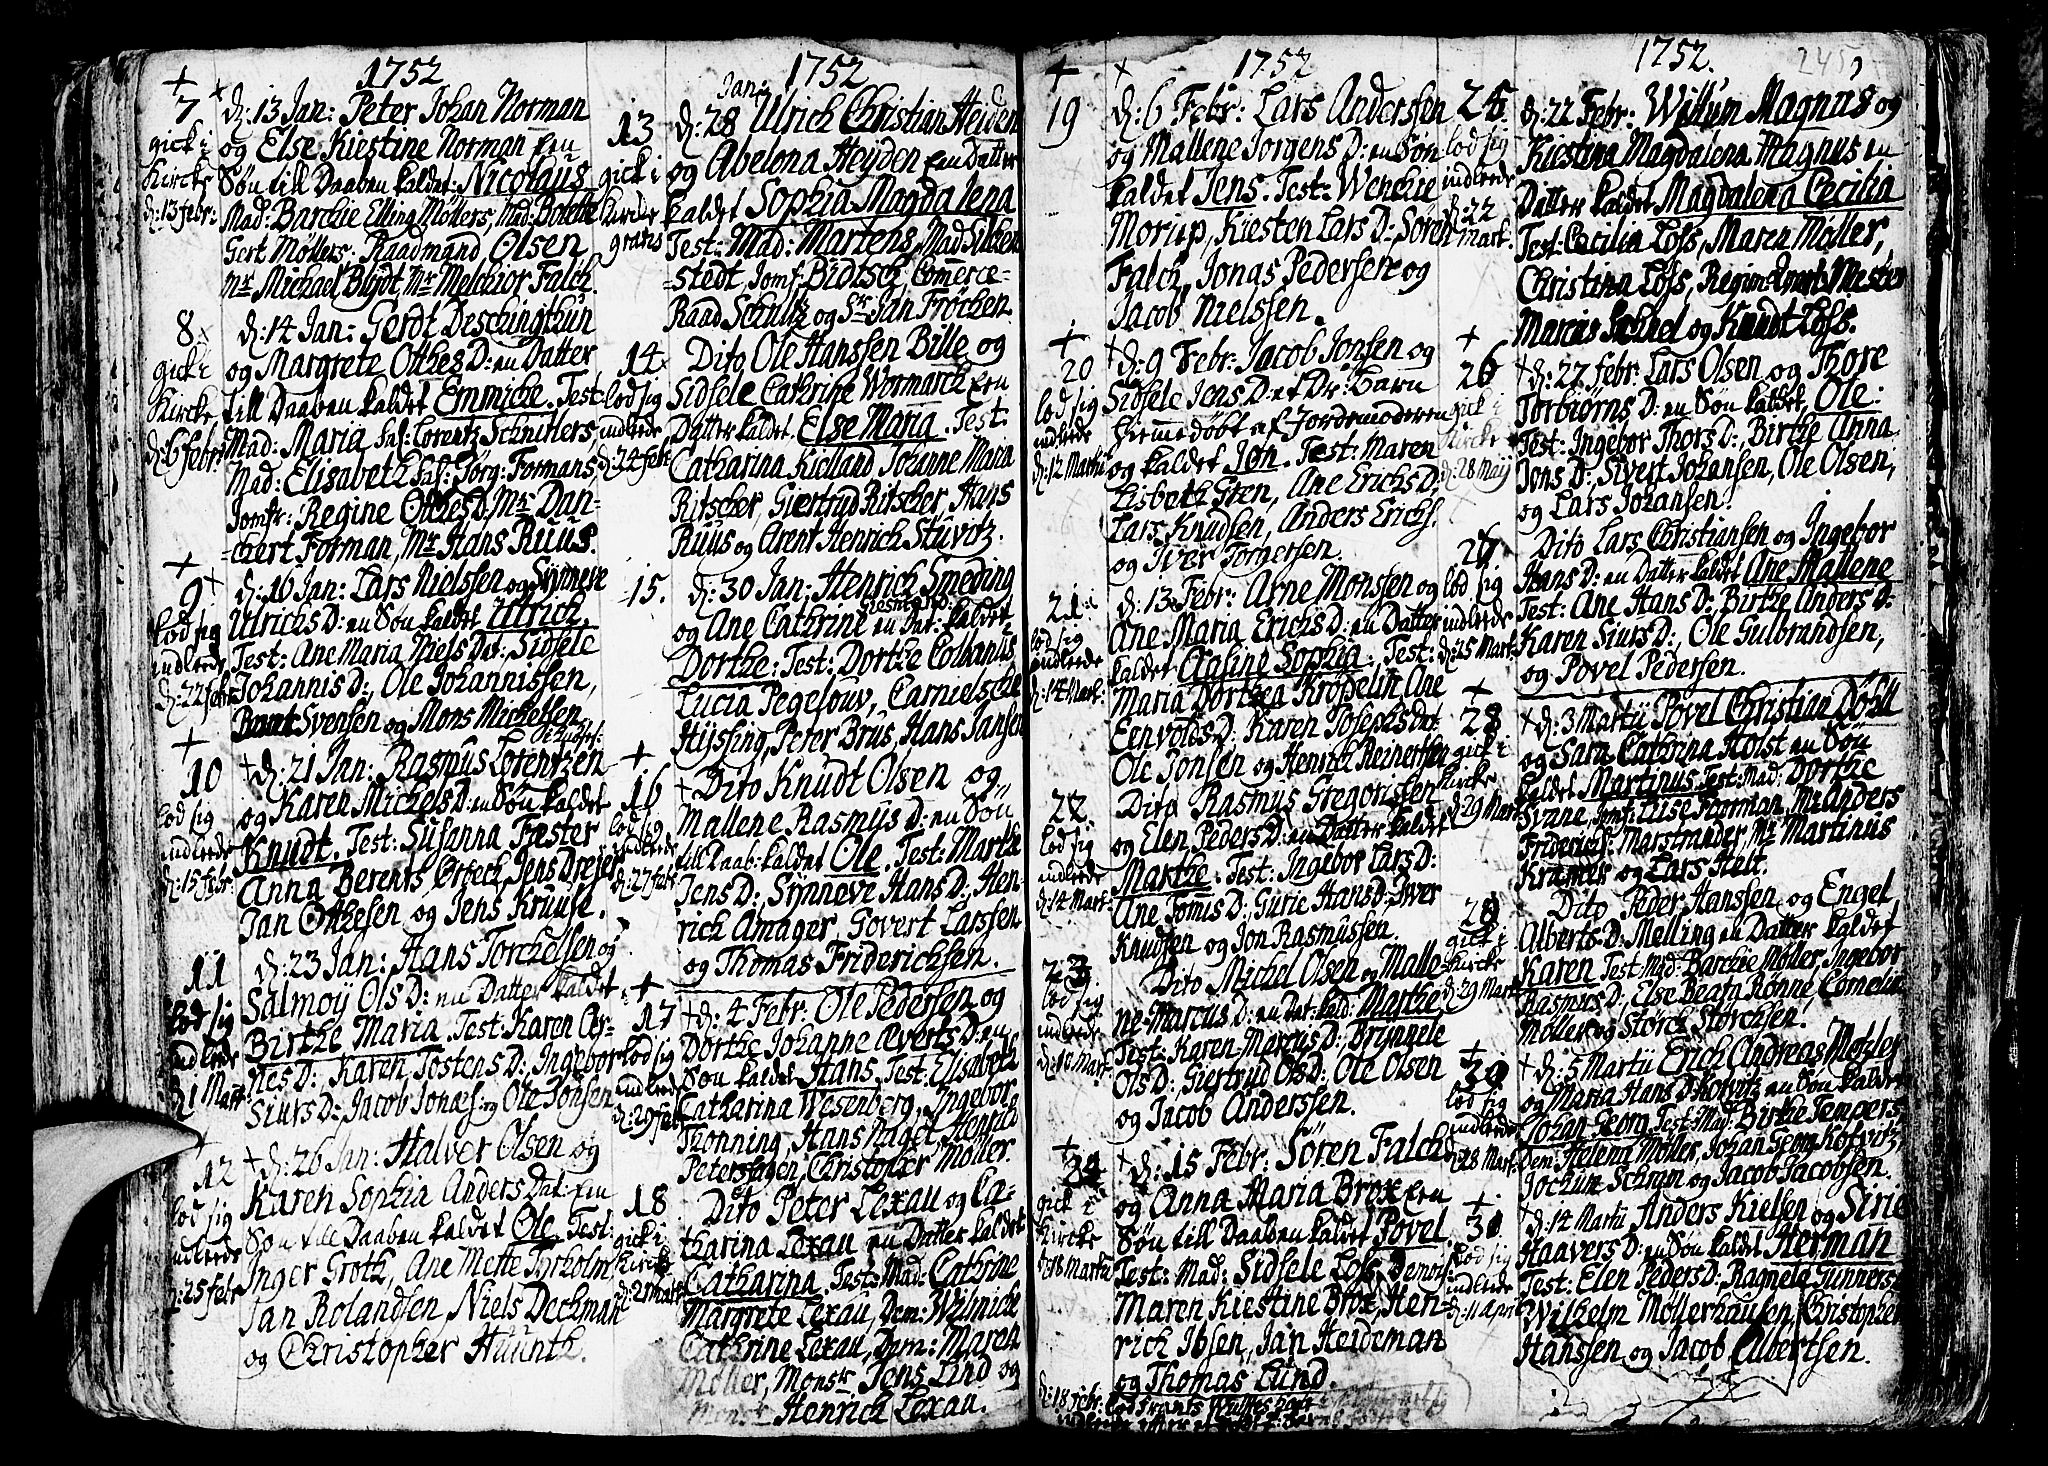 1752
+
7
gick i
Kircke
d: 13 febr:
d: 13 Jan: Peter Johan Norman
og Else Kiestine Norman Een
Søn till Daaben kaldet Nicolaus
Mad: Barchie Elling Møllers, Mad: Borette
Gert Møllers. Raadmand Olsen
Mr Michael Blÿdt, Mr Melchior Falch.
8
gick i
Kircke
d: 6 febr
d: 14 Jan: Gerdt Deschingthun
og Margrete Otthes D: en Datter
till Daaben kaldet Emmicke. Test:
Mad: Maria Sal: Lorentz Schnitlers
Mad: Elisabeth Sal: Jörg: Formans,
Jomfr: Regine Otthes D. Mr Dan-
ckert Forman, Mr Hans Ruus.
+
9
lod sig
indleede
d: 22 febr
d: 16 Jan: Lars Nielssen og Sÿnneve
Ulrichs D: en Søn kaldet Ulrich.
Test: Ane Maria Niels Dat: Sidsele
Johannis D:, Ole Johannissen,
Svensen og Mons Michelsen
+
10
lod sig
indleede
d: 15 febr:
d: 21 Jan: Rasmus Lorentzen
og Karen Michels D: en Søn kaldet
Knudt. Test: Susanna Fæster
Anna Berents, Otbeck, Jens Drejer
Jan Otthesen og Jens Kruuse.
11
lod sig
indleede
d: 1 Mart
d: 23 Jan: Hans Torchelsen og
Salmoÿ Ols D: en Datter kaldet
Birthe Maria. Test: Karen Ar-
nes D: Karen Tostens D: Ingebor
Siurs D: Jacob Jonæs: og Ole Jonsen
+
12
lod sig
indleede
d: 25 febr
d: 26 Jan: Halver Olsen og
Karen Sophia Anders Dat: Een
Søn till Daaben kaldet Ole. Test:
Inger Groth, Ane Mette Tyrholm
Jan Rolandsen Niels Deckman
og Christopher Huunth.
1752
13
gick i
Kircke
gratis
Jan:
d: 28 Ulrich Christian Heiden
og Abelona Heÿden Een Datter
kaldet Sophia Magdalena
Test: Mad: Martens, Mad: Silcken
=stedt, Jomf: Bidtsch, Commerce-
Raad Schultz og Sr Jan Fröchen.
14
lod sig
indleede
d: 24 febr
Dito Ole Hanssen Bille og
Sidsele Cathrine Wormarck Een
Datter kaldet Else Maria. Test:
Catharina Kielland Johanne Maria
Ritscher, Giertrud Ritscher, Hans
Ruus og Arent Henrich Stuvitz.
15.
d: 30 Jan: Henrich Smeding
og Ane Cathrine en Dat: kaldet
Dorthe: Test: Dorthe Colbanus
Lucia Pegelouw, Carnielsche
Hÿssing, Peter Brus, Hans Jansen
+
16
lod sig
indleede
d: 27 febr
Dito Knudt Olsen og
Mallene Rasmus D: en Søn
till Daab: kaldet Ole. Test: Marthe
Jens D: Sÿnneve Hans D: Hen-
rich Amager, Govert Larssen
og Thomas Friderichsen.
+
17
lod sig
indleede
d: 29 febr
d: 4 Febr: Ole Pedersen og
Dorthe Johanne Everts D: en
Søn kaldet Hans. Test: Elisabeth
Catharina Wesenberg, Ingebor
Thonning, Hans Naget Henrich
Petershagen, Christopher Møller.
18
gick i
Kircke
d: 2 Martii
Dito Peter Lexau og Ca-
tharina Lexau en Datter kaldet
Catharina. Test: Mad: Cathrine
Margrete Lexau, Dem: Wilmiche
Cathrine Lexau, Dem: Maren
Møller, Monsr Jens Lind og
Monsr Henrich Lexau.
1752
+
19
d: 6 Febr: Lars Anderssen
og Mallene Jorgens D: en Søn
kaldet Jens. Test: Wenche
Moriip, Kiesten Lars D: Soren
Falch, Jonas Pedersen og
Jacob Nielssen.
+
20
lod sig
indleede
d: 12 Martii
d: 9 Febr: Jacob Jonsen og
Sidsele Jens D: et Dr: Barn
hiemmedöbt af Jordemoderen
og kaldet Jon. Test: Maren
Lisbeth Sten, Ane Erichs D:
Lars Knudsen, Anders Erichs.
og Iver Torgersen.
21
lod sig
indleede
d: 14 Mart.
d: 13 Febr: Arne Monssen og
Ane Maria Erichs D: en Datter
kaldet Aasine Sophia. Test:
Maria Dorthea Kröpelin Ane
Eenvolds D: Karen Josephs Dat
Ole Jonsen og Henrich Reinertsen
22
lod sig
indleede
d: 14 Mart:
Dito Rasmus Gregorissen
og Elen Peders D: en Datter kaldet
Marthe. Test: Ingebor Lars D:
Ane Tomis D: Gurie Hans D: Iwer
Knudsen og Jon Rasmussen.
23
lod sig
indleede
d: 18 Mart
Dito Michel Olsen og Malle-
ne Marcus D: en Dat: kald: Marthe
Test: Karen Marcus D: Brÿnnele
Ols D: Giertrud Ols D: Ole Olsen
og Jacob Anderssen.
+
24
gick i
Kircke
d: 18 Martii
d: 15 Febr: Sören Falch
og Anna Maria Brox Een
Søn till Daaben kaldet Povel.
Test: Mad: Sidsele Löfs, Demois
Maren Kiestine Brox, Hen-
rich Ibsen, Jan Heideman
og Thomas Lund.
1752.
245
25
lod sig
indleede
d: 22
Mart.
d: 22 Febr: Willum Magnus og
Kiestina Magdalena Magnus en
Datter kaldet Magdalena Cecilia
Test: Cecilia Löfs, Maren Møller,
Christina Löfs,
Marcus Schiel og Knudt Löfs.
+
26
gick i
Kircke
d: 28 Maÿ
d: 27 febr: Lars Olsen og Thore
Torbiörns D: en Søn kaldet Ole:
Test: Ingebor Thors D:, Birthe Anna
Jons D:, Sivert Johansen, Ole Olsen,
og Lars Johansen.
lod sig
indleede
d: 25 Mart.
Dito Lars Christiansen og Ingebor
Hans D: en Datter kaldet Ane Mallene
Test: Ane Hans D: Birthe Anders D:
Karen Siurs D:, Ole Gulbrandsen,
og Povel Pedersen.
+
28
gick i
Kircke
d: 29 Mart
d: 3 Martii Povel Christian Döhl
og Sara Cathrina Holst en Søn
kaldet Martinus. Test: Mad: Dorthe
Svane, Jomf: Lise Forman, Mr Anders
Friderich Marstrander, Mr Martinus
Kramer og Lars Helt.
29
gick i
Kircke
d: 29 Mart
Dito Peder Hanssen og Engel
Alberts D: Melling en Datter kaldet
Karen Test: Mad: Barchie Møller, Ingebor
Rasmus D:, Else Beata Rönne, Cornelius
Møller og Störck Storchsen.
+
30
lod sig
indleede
d: 28 Mart.
d: 5 Martii Erich Andreas Møhler
og Maria Hans D: Kotvitz en Søn kaldet
Johan Georg. Test: Mad: Birthe Tempers
Dem: Helena Möller, Johan Georg Kotvitz
Jochum Schram og Jacob Jacobsen.
+
31
lod sig
indleede
d: 11 Apri
d: 14 Martii Anders Kielsen og Sirie
Haavers D: en Søn kaldet Herman
Test: Elen Peders D: Ragnele Gunners
Wilhelm Möllerhausen, Christopher
Hanssen og Jacob Albertsen.